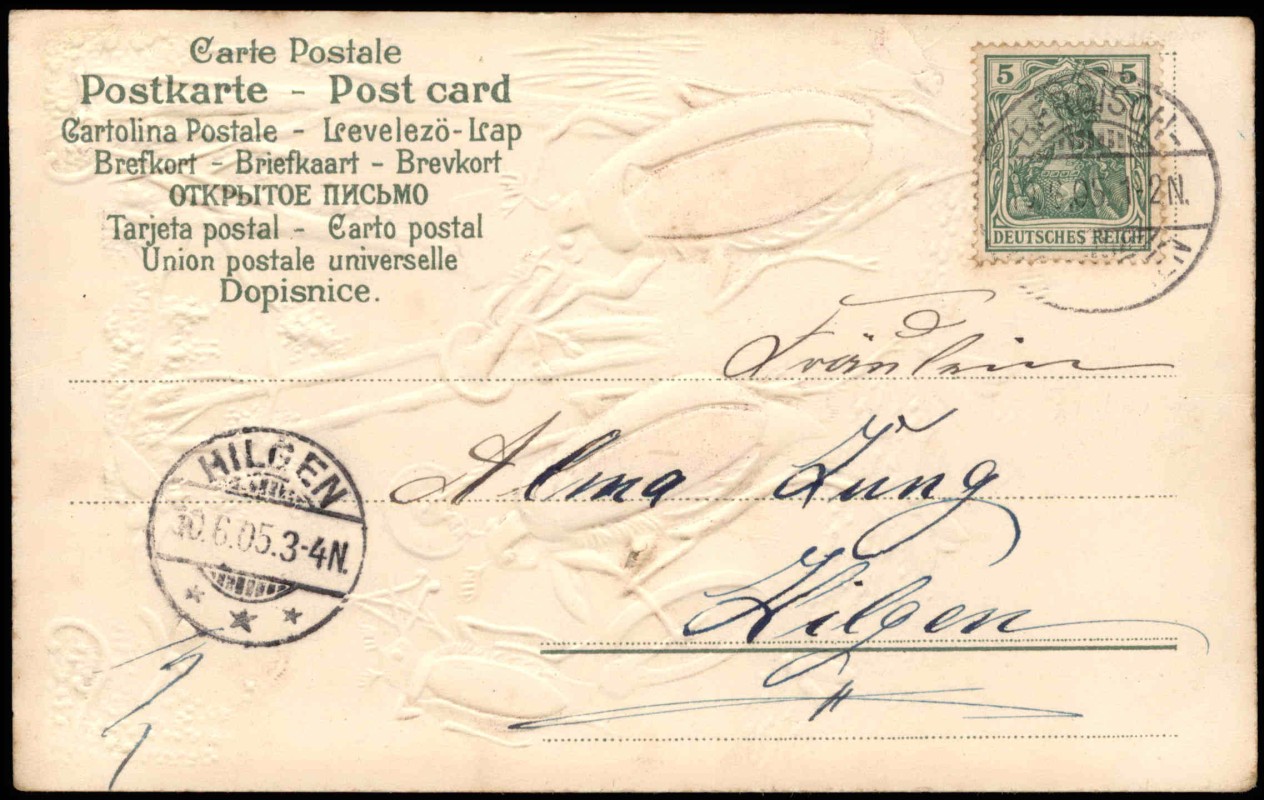 Carte Postale
Postkarte - Post card
Cartolina Postale - Levelezö-Lap
Brefkort - Briefkaart - Brevkort
ОТКРЫТОЕ ПИСЬМО
Tarjeta postal - Carto postal
Union postale universelle
Dopisnice.
5 5
DEUTSCHES REICH
05.1-2N.
Fräulein
Alma Jung
Hilgen
HILGEN
10.6.05.3-4N.